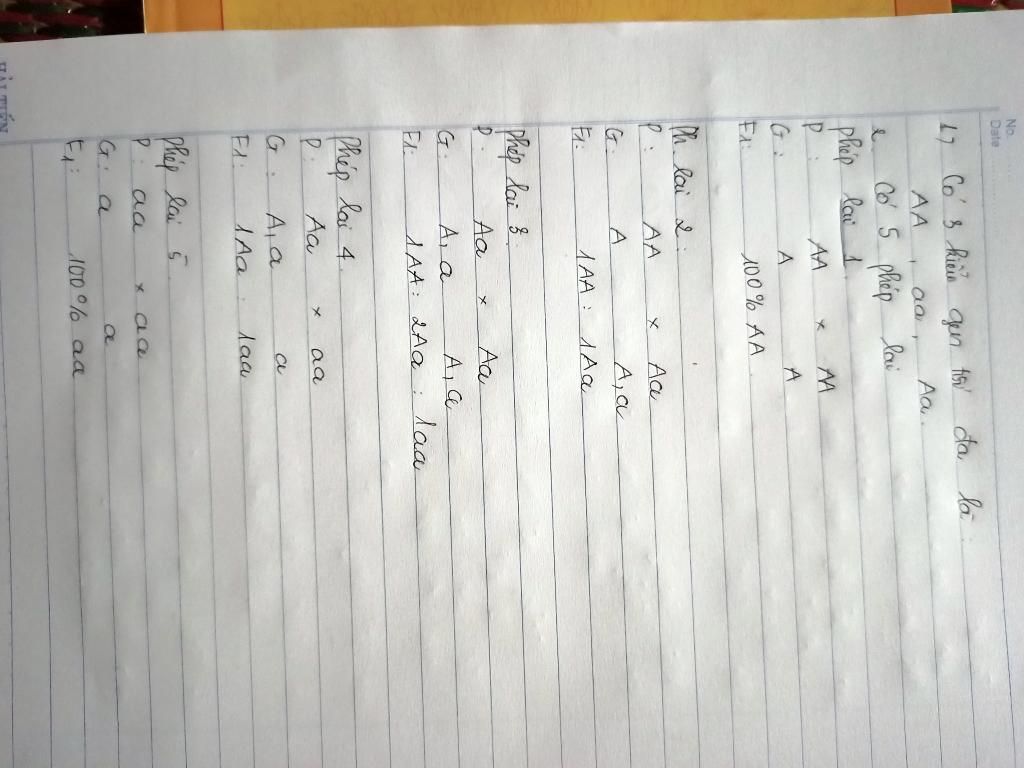 No.
Date
1) Có 3 kiểu gen tối đa là:
AA, aa, Aa.
2. Có 5 phép lai
phép lai 1
P: AA × AA
G: A A
F1: 100% AA.
Ph lai 2:
P: AA × Aa
G: A A,a
F1: 1AA: 1Aa
Phép lai 3.
P: Aa × Aa
G: A,a A,a
F1: 1AA: 2Aa: 1aa
Phép lai 4.
P: Aa × aa
G: A,a a
F1: 1Aa: 1aa
Phép lai 5
P: aa × aa
G: a a
F1: 100% aa
HẢI TIẾN